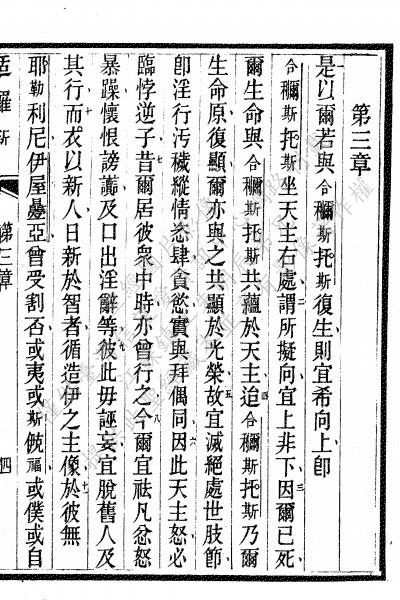 第三章
是以爾若與合穪斯托斯復生則宜希向上卽
合穪斯托斯坐天主右處謂所擬向宜上非下因爾已死
爾生命與合穪斯托斯共蘊於天主迨合穪斯托斯乃爾
生命原復顯爾亦與之共顯於光榮故宜滅絕處世肢節
卽淫行汚穢縱情恣肆貪慾實與拜偶同因此天主怒必
臨悖逆子昔爾居彼衆中時亦曾行之今爾宜祛凡忿怒
暴躁懷恨謗讟及口出淫辭等彼此毋誣妄宜脫舊人及
其行而衣以新人日新於智者循造伊之主像於彼無
耶勒利尼伊屋曡亞曾受割否或夷或斯福或僕或自
羅新 第三章 四